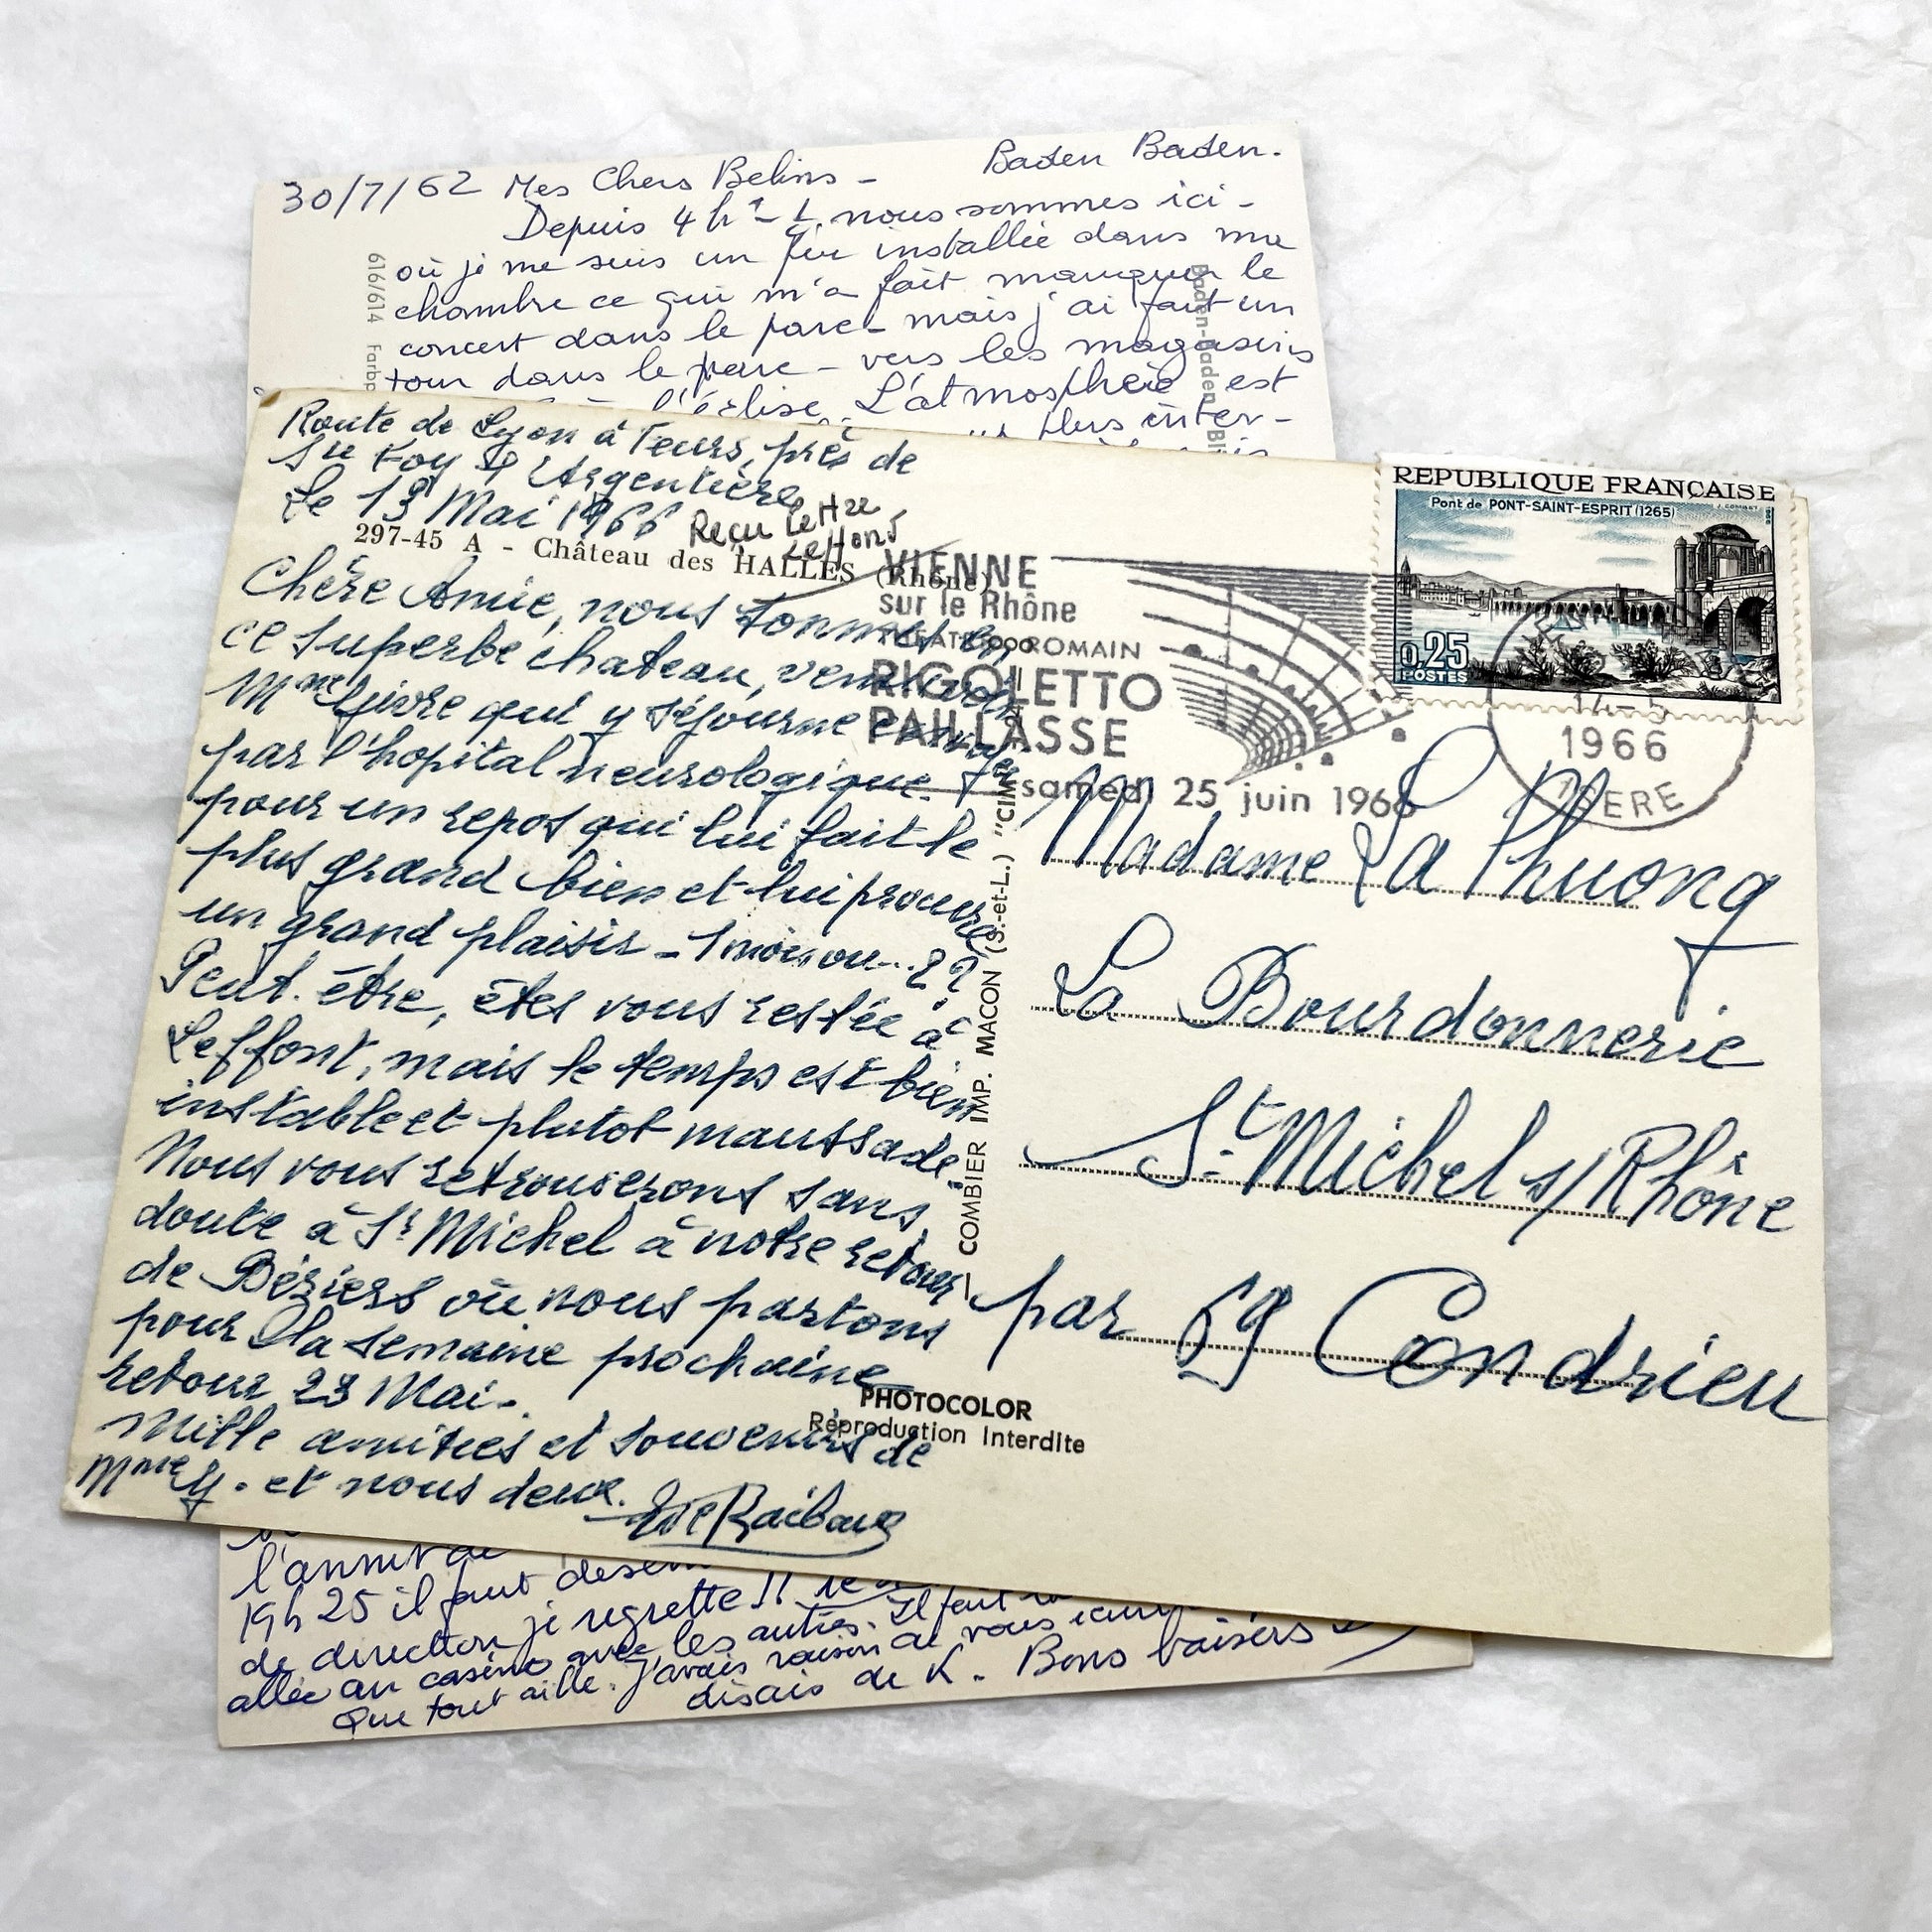 30/7/62 Mes Chers Belins - Baden Baden.
Depuis 4 h nous sommes ici -
où je me suis un peu installée dans ma
chambre ce qui m'a fait manquer le
concert dans le parc - mais j'ai fait un
tour dans le parc - vers les magasins
l'église. L'atmosphère est
plus inter-
616/614 Farbp
Baden-Baden Bl
Route de Lyon à Feurs, près de
Ste Foy l'Argentière
Le 13 Mai 1966
Reçu lettre
Leffont
297-45 A - Château des HALLES (Rhône)
Chère Amie, nous sommes en
ce superbe chateau, venus voir
Mme qui y séjourne envoyée
par l'hopital neurologique.
pour un repos qui lui fait le
plus grand bien et lui procure
un grand plaisir - 1 mois ou... 2?
Peut. être, êtes vous restée à
Leffont, mais le temps est bien
instable et plutot maussade.
Nous vous retrouverons sans
doute à St Michel à notre retour
de Béziers où nous partons
pour la semaine prochaine
retour 23 Mai.
Mille amities et souvenirs de
Mme G. et nous deux.
COMBIER IMP. MACON (S.-et-L.) "CIM"
PHOTOCOLOR
Reproduction Interdite
VIENNE
sur le Rhône
THEATRE ROMAIN
RIGOLETTO
PAILLASSE
samedi 25 juin 1966
REPUBLIQUE FRANÇAISE
Pont de PONT-SAINT-ESPRIT (1265)
0,25
POSTES
14-5
1966
ISERE
Madame La Phuong
La Bourdonnerie
St Michel s/Rhône
par 69 Condrieu
19h 25 il faut
de direction je regrette !!
allée au casino avec les autres. Il fait
Que tout aille. J'avais raison de vous
disais de K. Bons baisers